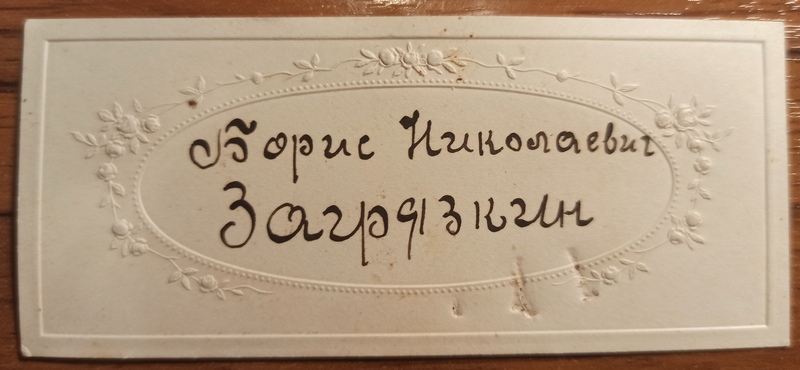 Борис Николаевич
Загрязкин